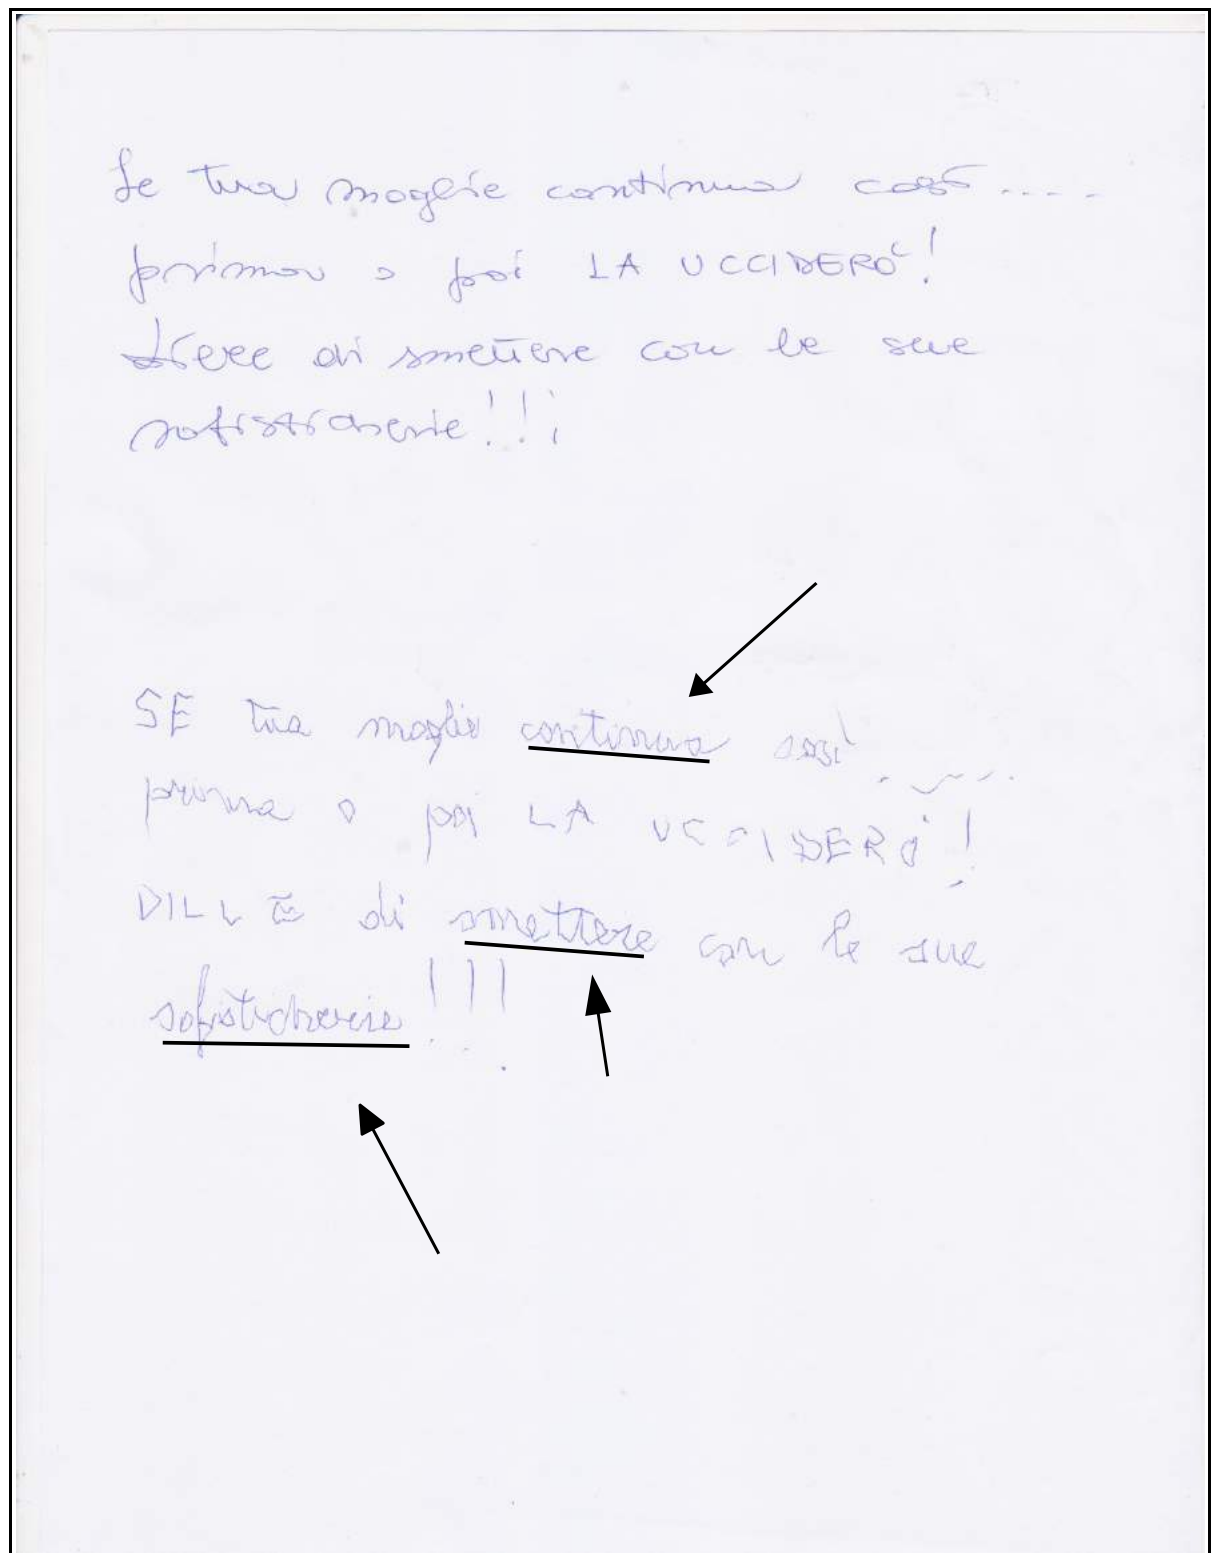 Se tua moglie continua così....
prima o poi LA UCCIDERÒ!
di smettere con le sue
sofisticherie!!!
SE tua moglie continua così.....
prima o poi LA UCCIDERÒ!
DILLE di smettere con le sue
sofisticherie!!!